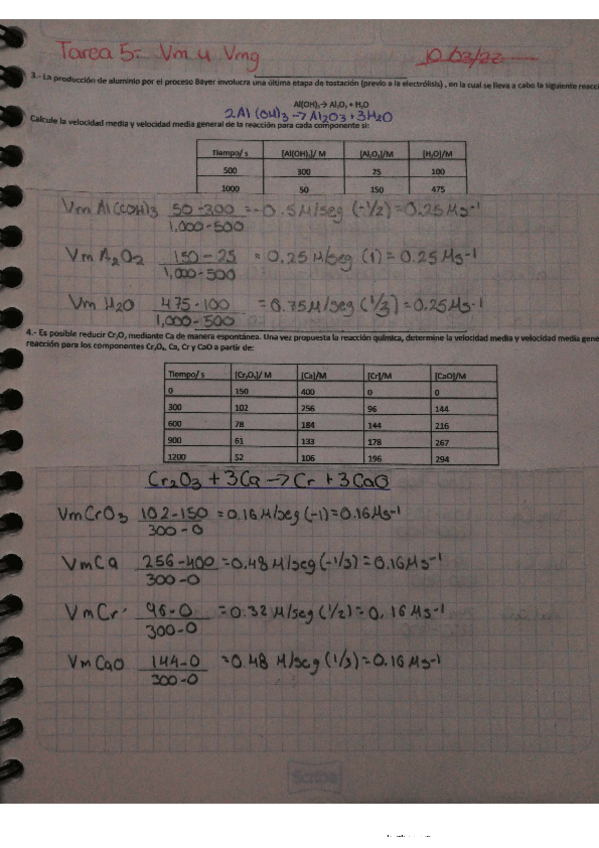 Tarea 5:- Vm y Vmg 10/03/22
3.- La producción de aluminio por el proceso Bayer involucra una última etapa de tostación (previo a la electrólisis) , en la cual se lleva a cabo la siguiente reacci
Al(OH)₃→ Al₂O₃ + H₂O
2Al(OH)3 → Al2O3 + 3H2O
Calcule la velocidad media y velocidad media general de la reacción para cada componente si:
Tiempo/ s [Al(OH)₃]/ M [Al₂O₃]/M [H₂O]/M
500 300 25 100
1000 50 150 475
Vm Al(COH)3 50-300 = -0.5 M/seg (-1/2) = 0.25 Ms-1
1,000-500
Vm A2O2 150-25 = 0.25 M/seg (1) = 0.25 Ms-1
1,000-500
Vm H2O 475-100 = 0.75M/seg (1/3) = 0.25 Ms-1
1,000-500
4.- Es posible reducir Cr₂O₃ mediante Ca de manera espontánea. Una vez propuesta la reacción química, determine la velocidad media y velocidad media gene
reacción para los componentes Cr₂O₃, Ca, Cr y CaO a partir de:
Tiempo/ s [Cr₂O₃]/ M [Ca]/M [Cr]/M [CaO]/M
0 150 400 0 0
300 102 256 96 144
600 78 184 144 216
900 61 133 178 267
1200 52 106 196 294
Cr2O3 + 3Ca → Cr + 3CaO
VmCrO3 102-150 = 0.16 M/seg (-1) = 0.16 Ms-1
300-0
VmCa 256-400 = 0.48 M/seg (-1/3) = 0.16 Ms-1
300-0
VmCr 96-0 = 0.32 M/seg (1/2) = 0.16 Ms-1
300-0
VmCaO 144-0 = 0.48 M/seg (1/3) = 0.16 Ms-1
300-0
Scribe